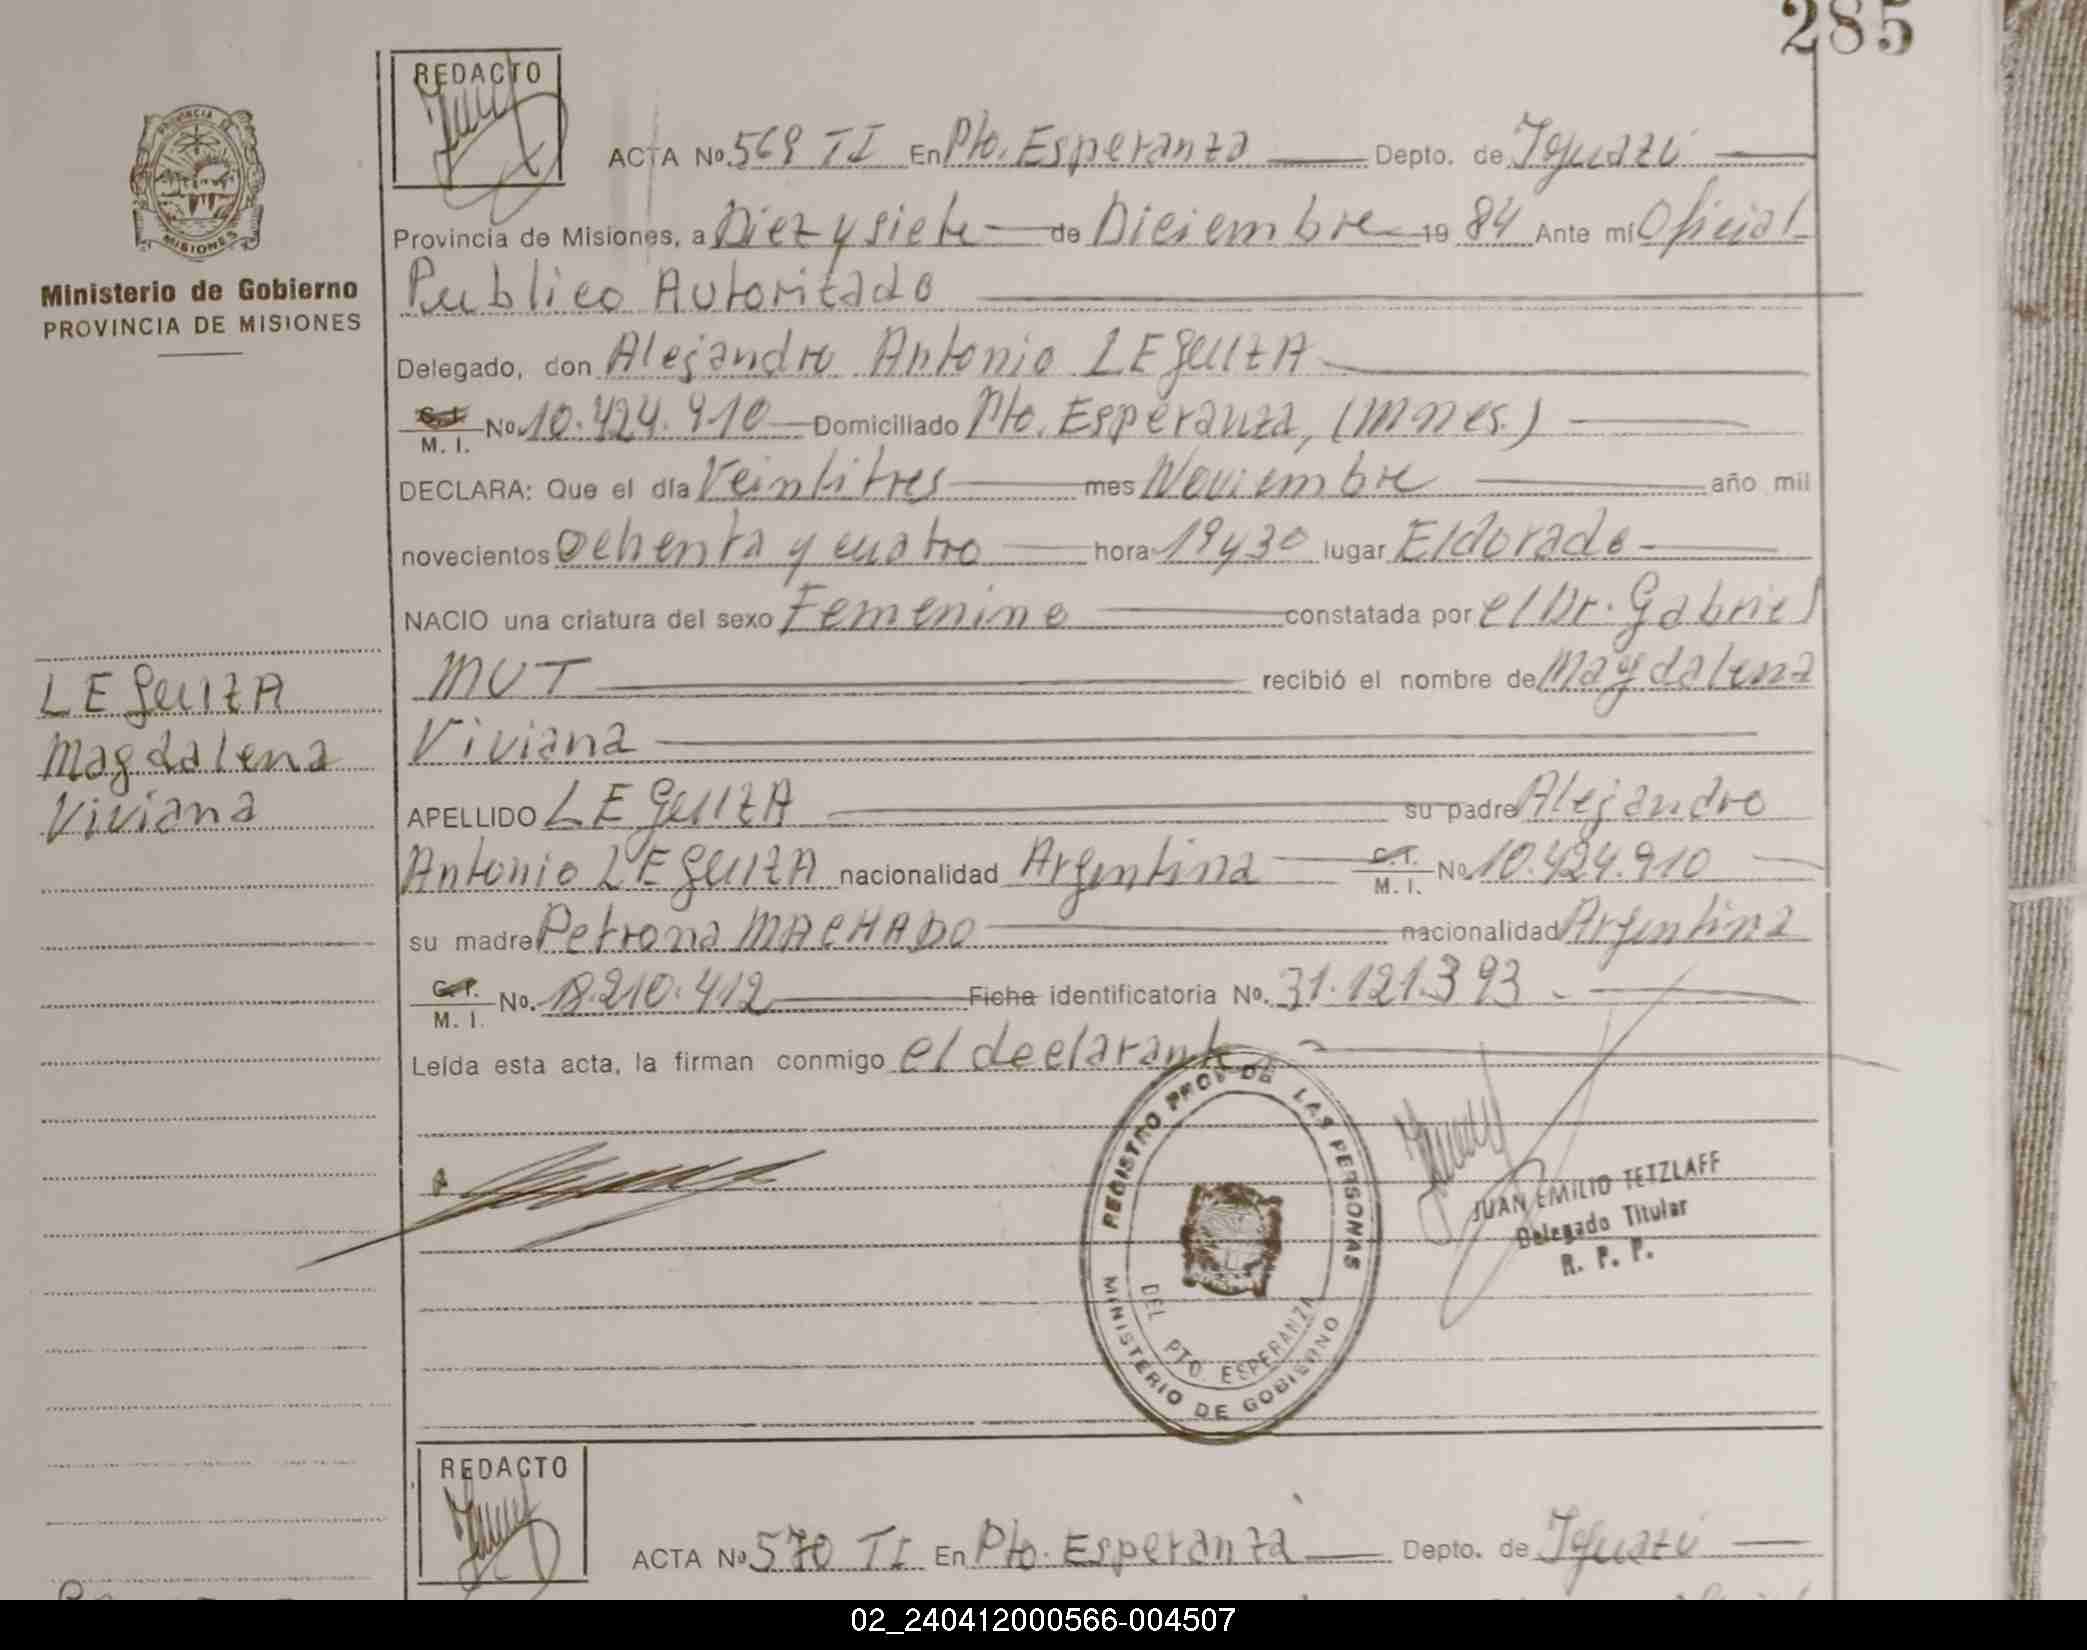 285
REDACTO
ACTA No. 569 TI En Pto. Esperanza Depto. de Iguazú
PROVINCIA DE
MISIONES
Provincia de Misiones, a Diez y siete de Diciembre 19 84 Ante mí Oficial
Ministerio de Gobierno
PROVINCIA DE MISIONES
Publico Autorizado
Delegado, don Alejandro Antonio LEguIzA
C.I. M. I. No. 10.424.910 Domiciliado Pto. Esperanza, (Mnes.)
DECLARA: Que el día Veintitres mes Noviembre año mil
novecientos Ochenta y cuatro hora 19 y 30 lugar Eldorado
NACIO una criatura del sexo Femenino constatada por el Dr. Gabriel
MUT recibió el nombre de Magdalena
Viviana
LEguIzA
Magdalena
Viviana
APELLIDO LEguIzA su padre Alejandro
Antonio LEguIzA nacionalidad Argentina C.I. M. I. No. 10.424.910
su madre Petrona MACHADO nacionalidad Argentina
C.I. M. I. No. 18.210.412 Ficha identificatoria No. 31.121.393.
Leída esta acta, la firman conmigo el declarante
REGISTRO PROV DE LAS PERSONAS
MINISTERIO DE GOBIERNO
DEL PTO. ESPERANZA
JUAN EMILIO TETZLAFF
Delegado Titular
R. P. P.
REDACTO
ACTA No 570 TI En Pto. Esperanza Depto. de Iguazú
02_240412000566-004507